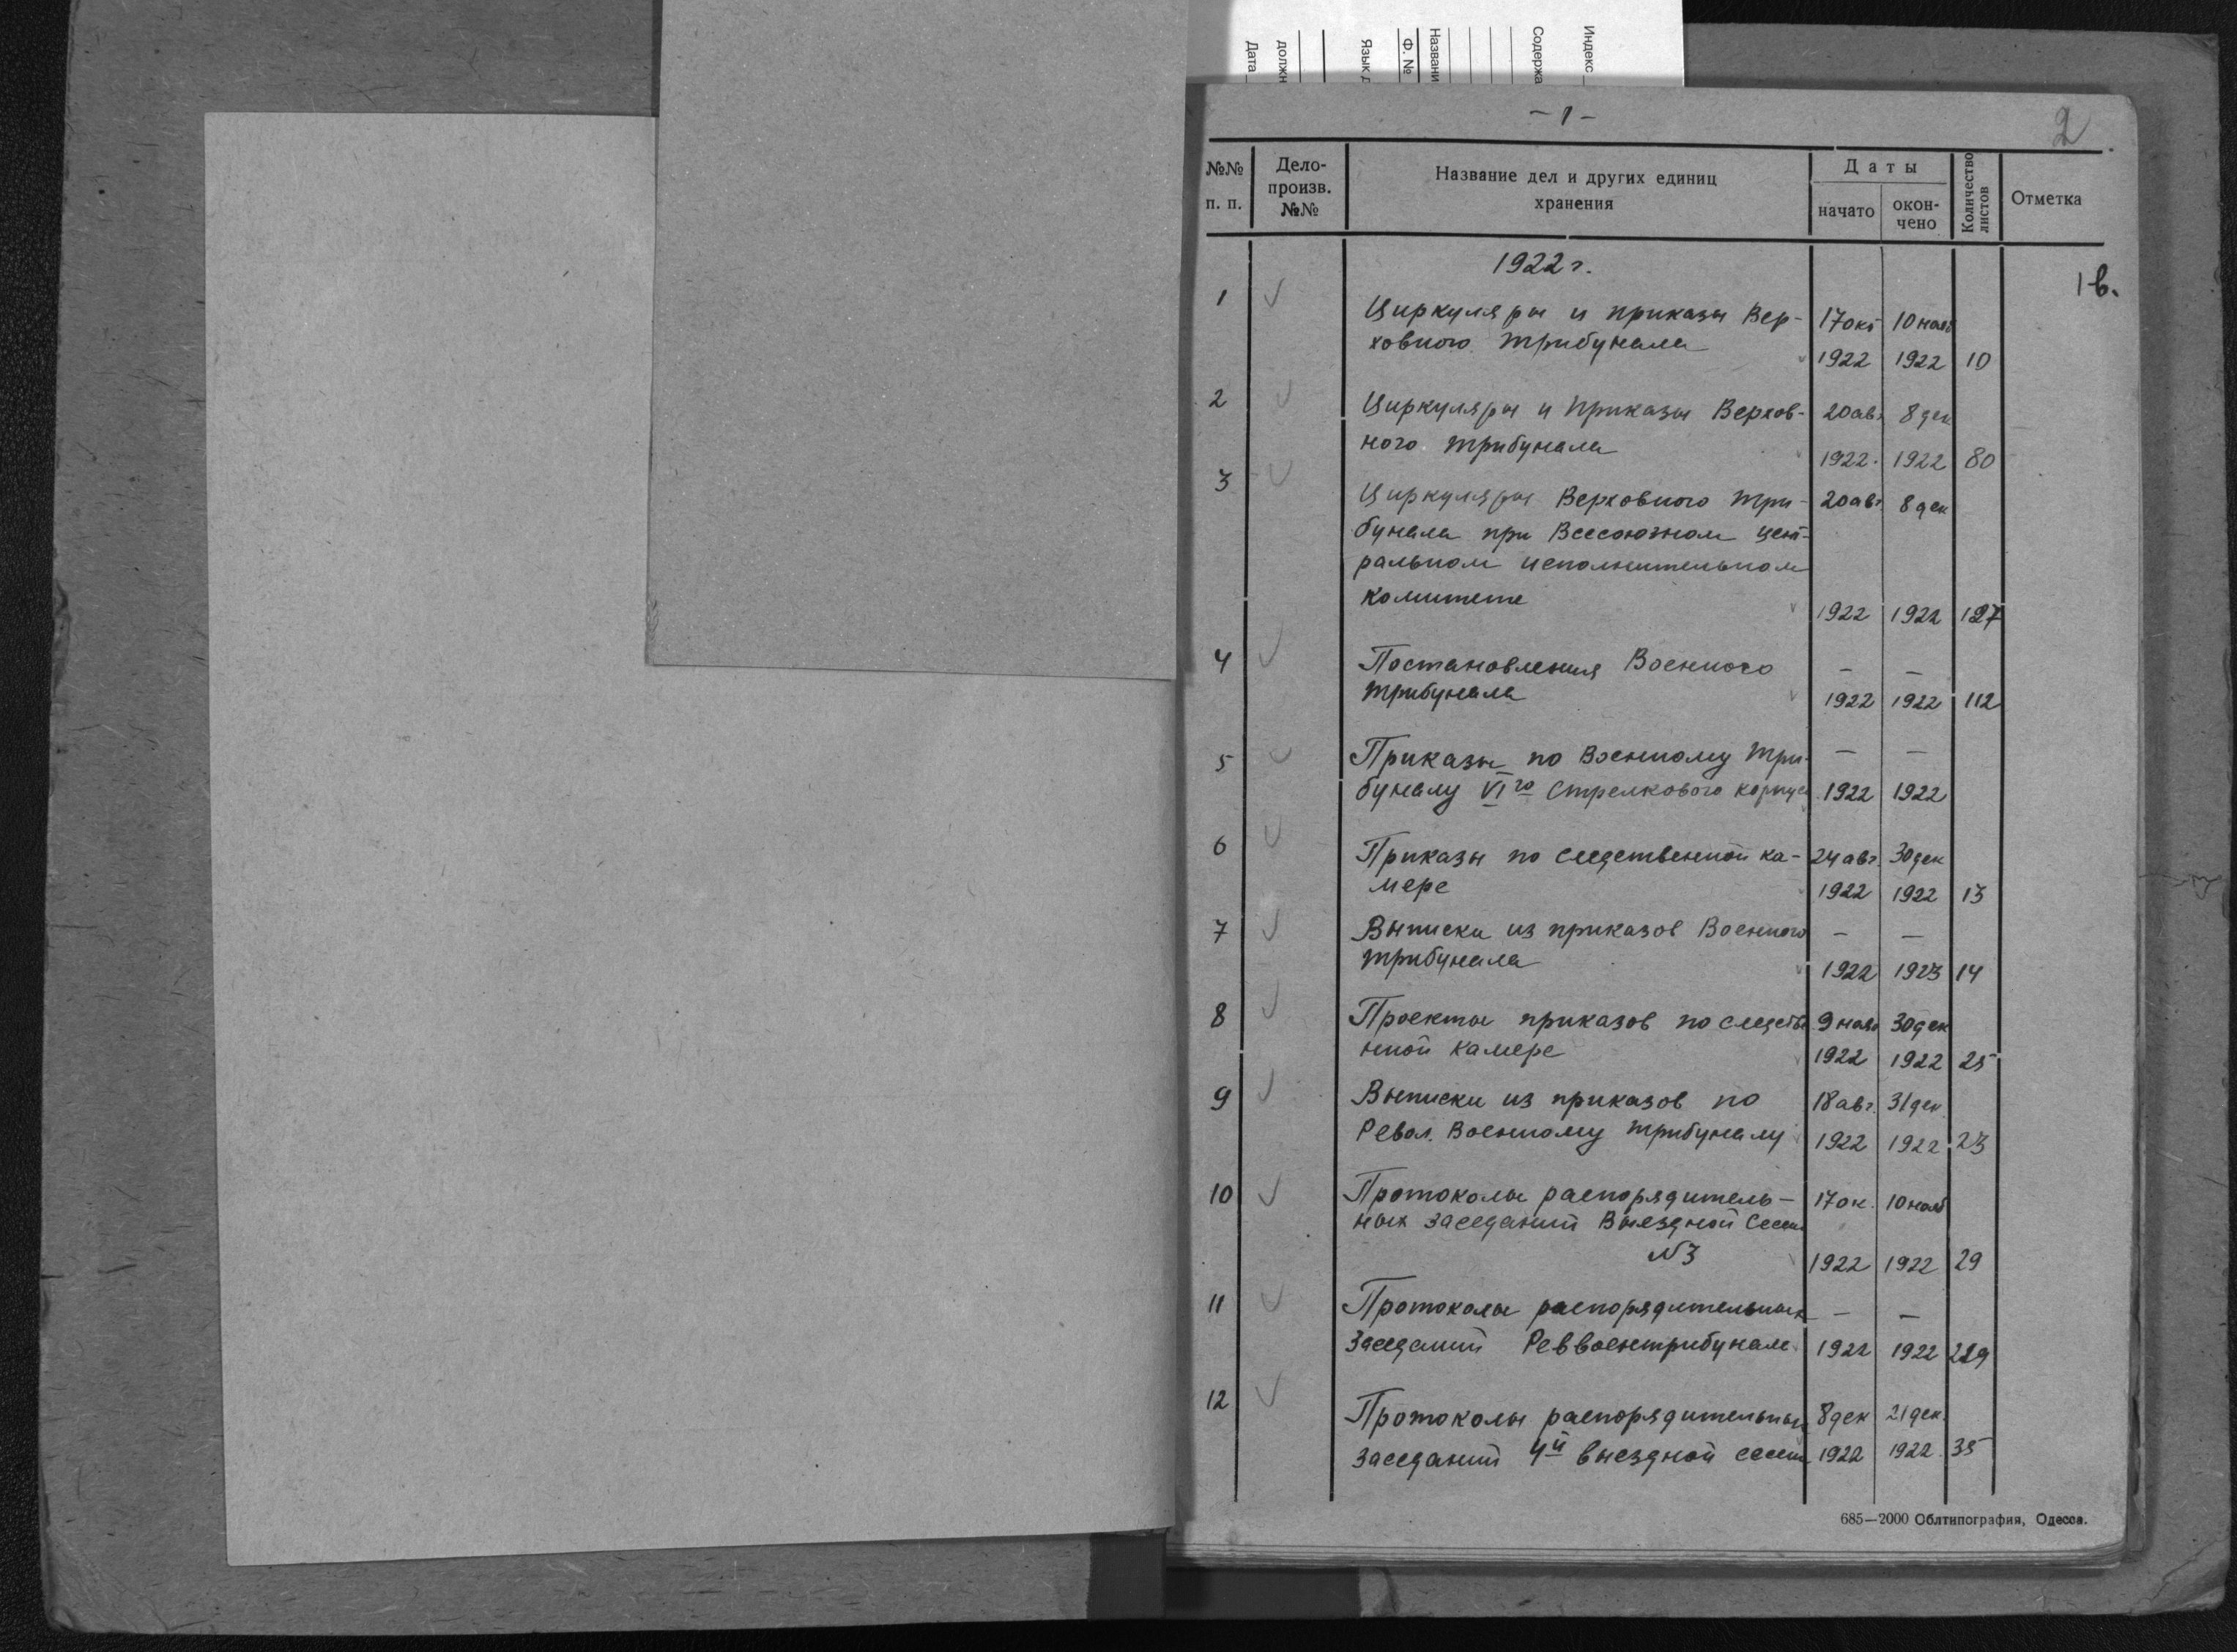 Дата
должн
Язык д
Ф. №
Названи
Содержа
Индекс
- 1 -
2
№№ п. п.
Дело-произв. №№
Название дел и других единиц хранения
Даты
начато
окон-чено
Количество листов
Отметка
1922 г.
1 в.
1 Циркуляры и приказы Вер- 17 окт 10 нояб
ховного трибунала 1922 1922 10
2 Циркуляры и приказы Верхов- 20 авг. 8 дек
ного трибунала 1922 1922 80
3 Циркуляры Верховного Три- 20 авг. 8 дек
бунала при Всесоюзном цент-
ральном исполнительном
комитете 1922 1922 127
4 Постановления Военного — —
трибунала 1922 1922 112
5 Приказы по Военному Три- — —
буналу VIго Стрелкового корпуса 1922 1922
6 Приказы по следственной ка- 24 авг. 30 дек
мере 1922 1922 13
7 Выписки из приказов Военного — —
трибунала 1922 1923 14
8 Проекты приказов по следстве 9 нояб 30 дек
нной камере 1922 1922 25
9 Выписки из приказов по 18 авг. 31 дек.
Револ. Военному трибуналу 1922 1922 23
10 Протоколы распорядитель- 17 ок. 10 нояб
ных заседаний Выездной Сессии
№3 1922 1922 29
11 Протоколы распорядительных — —
заседаний Реввоентрибунала 1922 1922 229
12 Протоколы распорядительных 8 дек 21 дек.
заседаний 4й выездной сессии 1922 1922 35
685—2000 Облтипография, Одесса.